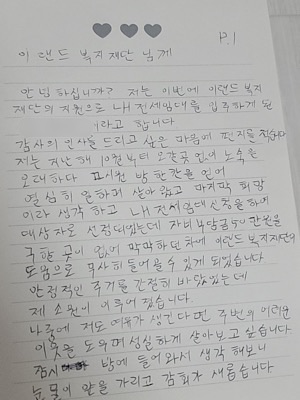 P.1
이랜드 복지재단 님께
안녕하십니까? 저는 이번에 이랜드 복지
재단의 지원으로 LH전세임대를 입주하게 된
라고 합니다
감사의 인사를 드리고 싶은 마음에 편지를
저는 지난해 10월부터 오갈곳 없어 노숙을
오래하다 고시원 방 한칸을 얻어
열심히 일하며 살아왔고 마지막 희망
이라 생각하고 LH전세임대 신청을 하여
대상자로 선정되었는데 자녀부담금 50만원을
구할 곳이 없어 막막하던차에 이랜드복지재단의
도움으로 무사히 들어올 수 있게 되었습니다
안정적인 주거를 간절히 바랐었는데
제 소원이 이루어졌습니다.
나중에 저도 여유가 생긴다면 주변의 어려운
이웃을 도우며 성실하게 살아보고 싶습니다
밤에 들어와서 생각해보니
눈물이 앞을 가리고 감회가 새롭습니다